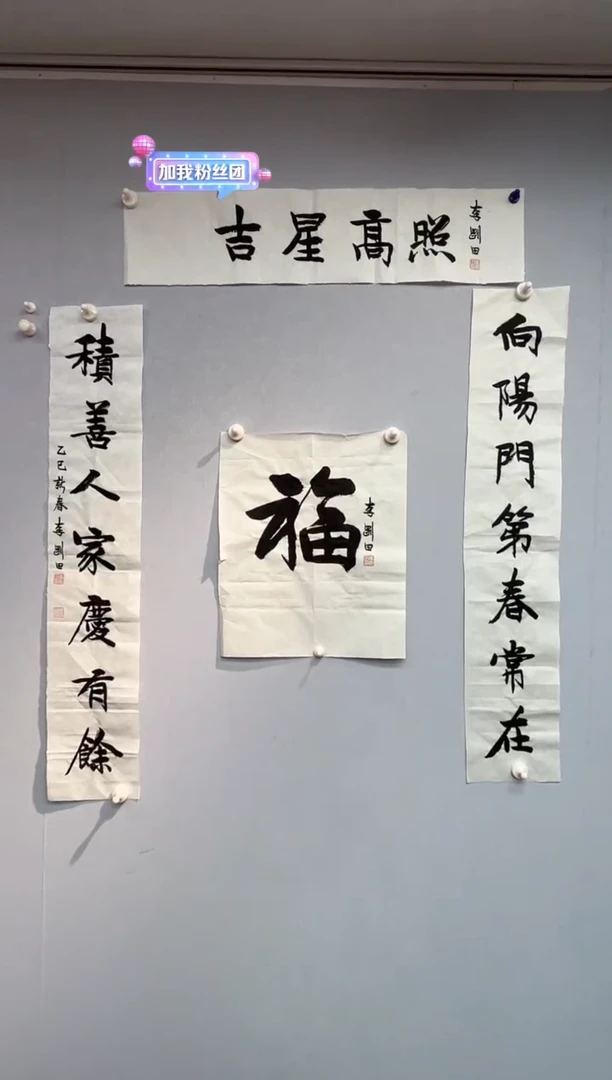 加我粉丝团
吉星高照
李刚田
向陽門第春常在
積善人家慶有餘
乙巳新春李刚田
福
李刚田